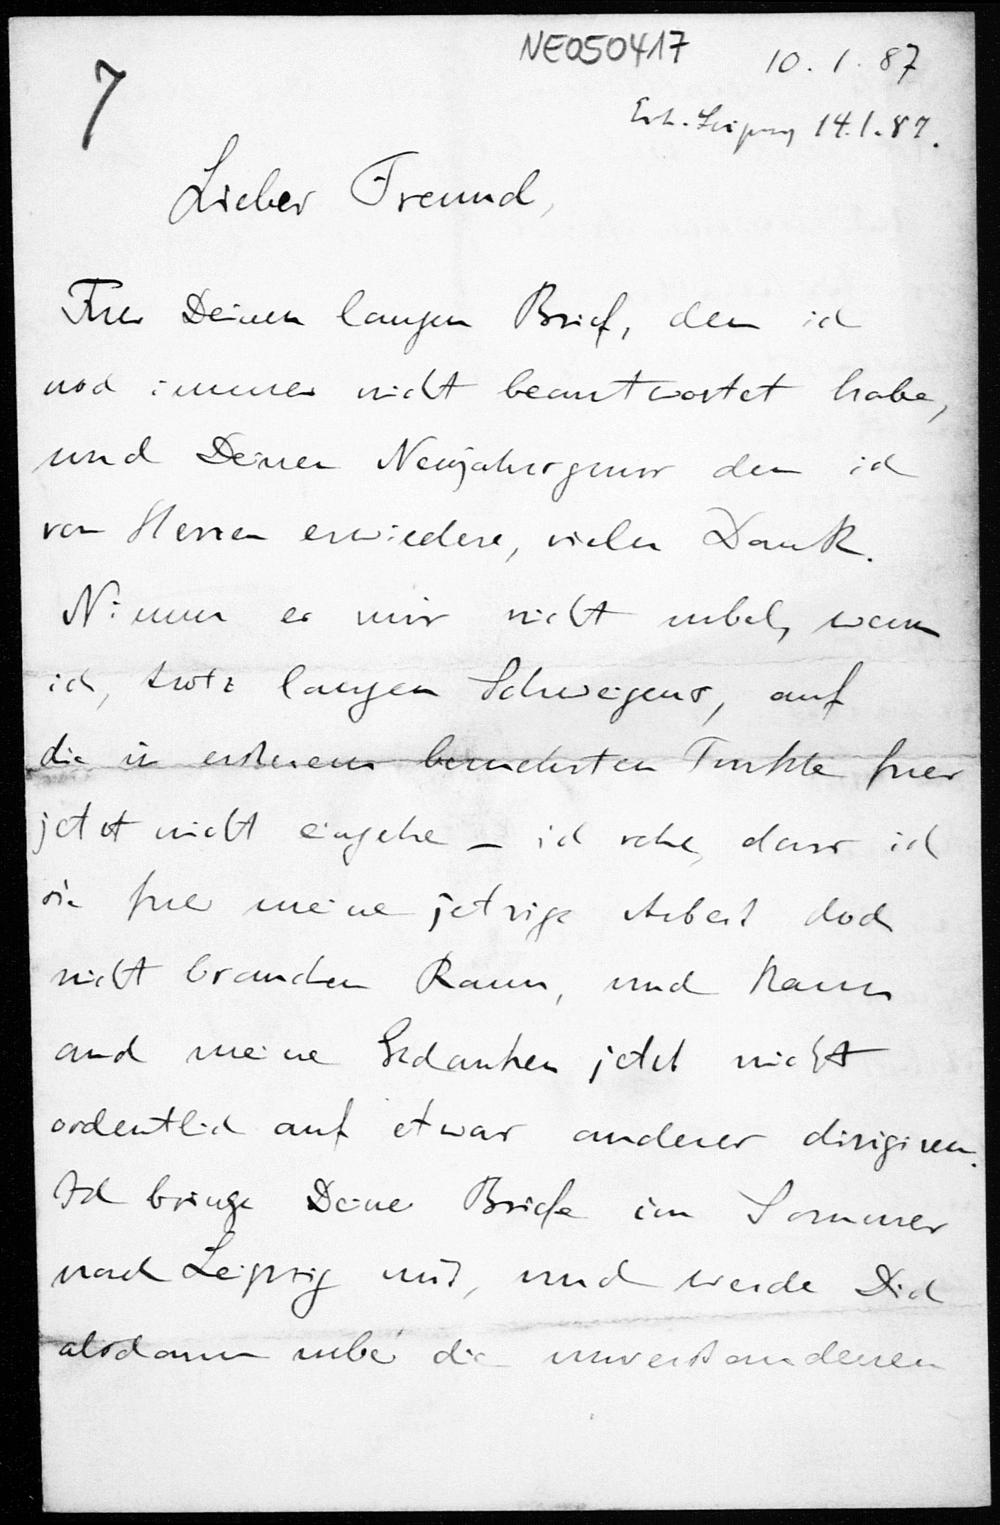 NE050417
7
10. 1. 87
Erh. Leipzig 14.1.87.
Lieber Freund,
Fuer Deinen langen Brief, den ich
noch immer nicht beantwortet habe,
und Deinen Neujahrsgruss den ich
von Herzen erwiedere, vielen Dank.
Nimm es mir nicht uebel, wenn
ich, trotz langen Schweigens, auf
die in ersterem beruehrten Punkte fuer
jetzt nicht eingehe – ich sehe, dass ich
sie fuer meine jetzige Arbeit doch
nicht brauchen kann, und kann
auch meine Gedanken jetzt nicht
ordentlich auf etwas anderes dirigiren.
Ich bringe Deine Briefe im Sommer
nach Leipzig mit, und werde Dich
alsdann ueber die unverstandenen